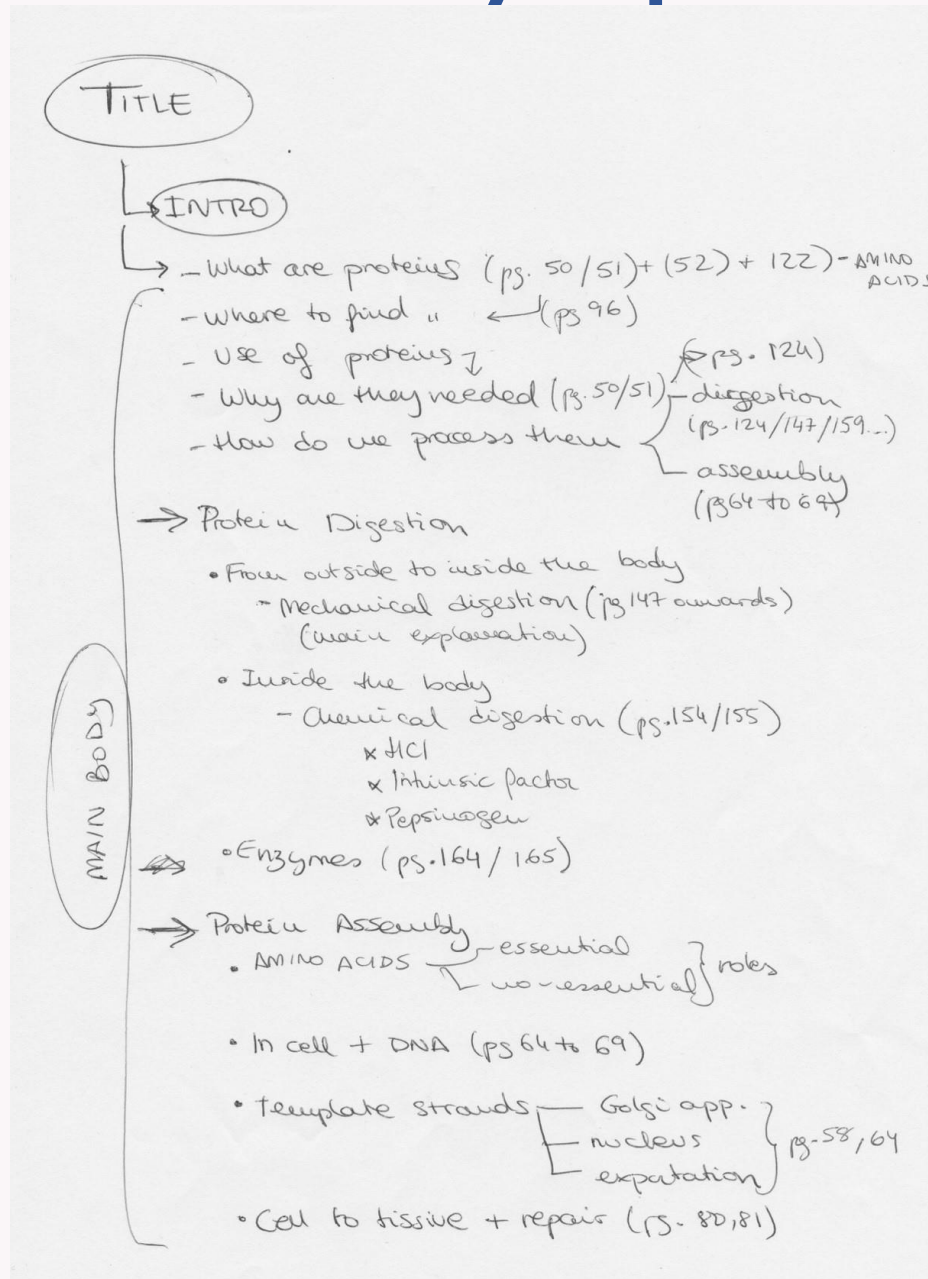 TITLE
INTRO
- What are proteins (pg. 50/51) + (52) + 122) - AMINO
ACIDS
- Where to find " (pg 96)
- Use of proteins
pg. 124)
- Why are they needed (pg. 50/51) - digestion
(pg. 124/147/159...)
- How do we process them
assembly
(pg 64 to 69)
→ Protein Digestion
• From outside to inside the body
- Mechanical digestion (pg 147 onwards)
(main explanation)
• Inside the body
- Chemical digestion (pg. 154/155)
* HCl
* Intrinsic factor
* Pepsinogen
• Enzymes (pg. 164 / 165)
MAIN BODY
→ Protein Assembly
• AMINO ACIDS essential
no-essential } roles
• In cell + DNA (pg 64 to 69)
• Template strands Golgi app.
nucleus } pg-58, 64
expotation
• Cell to tissive + repair (pg. 80,81)